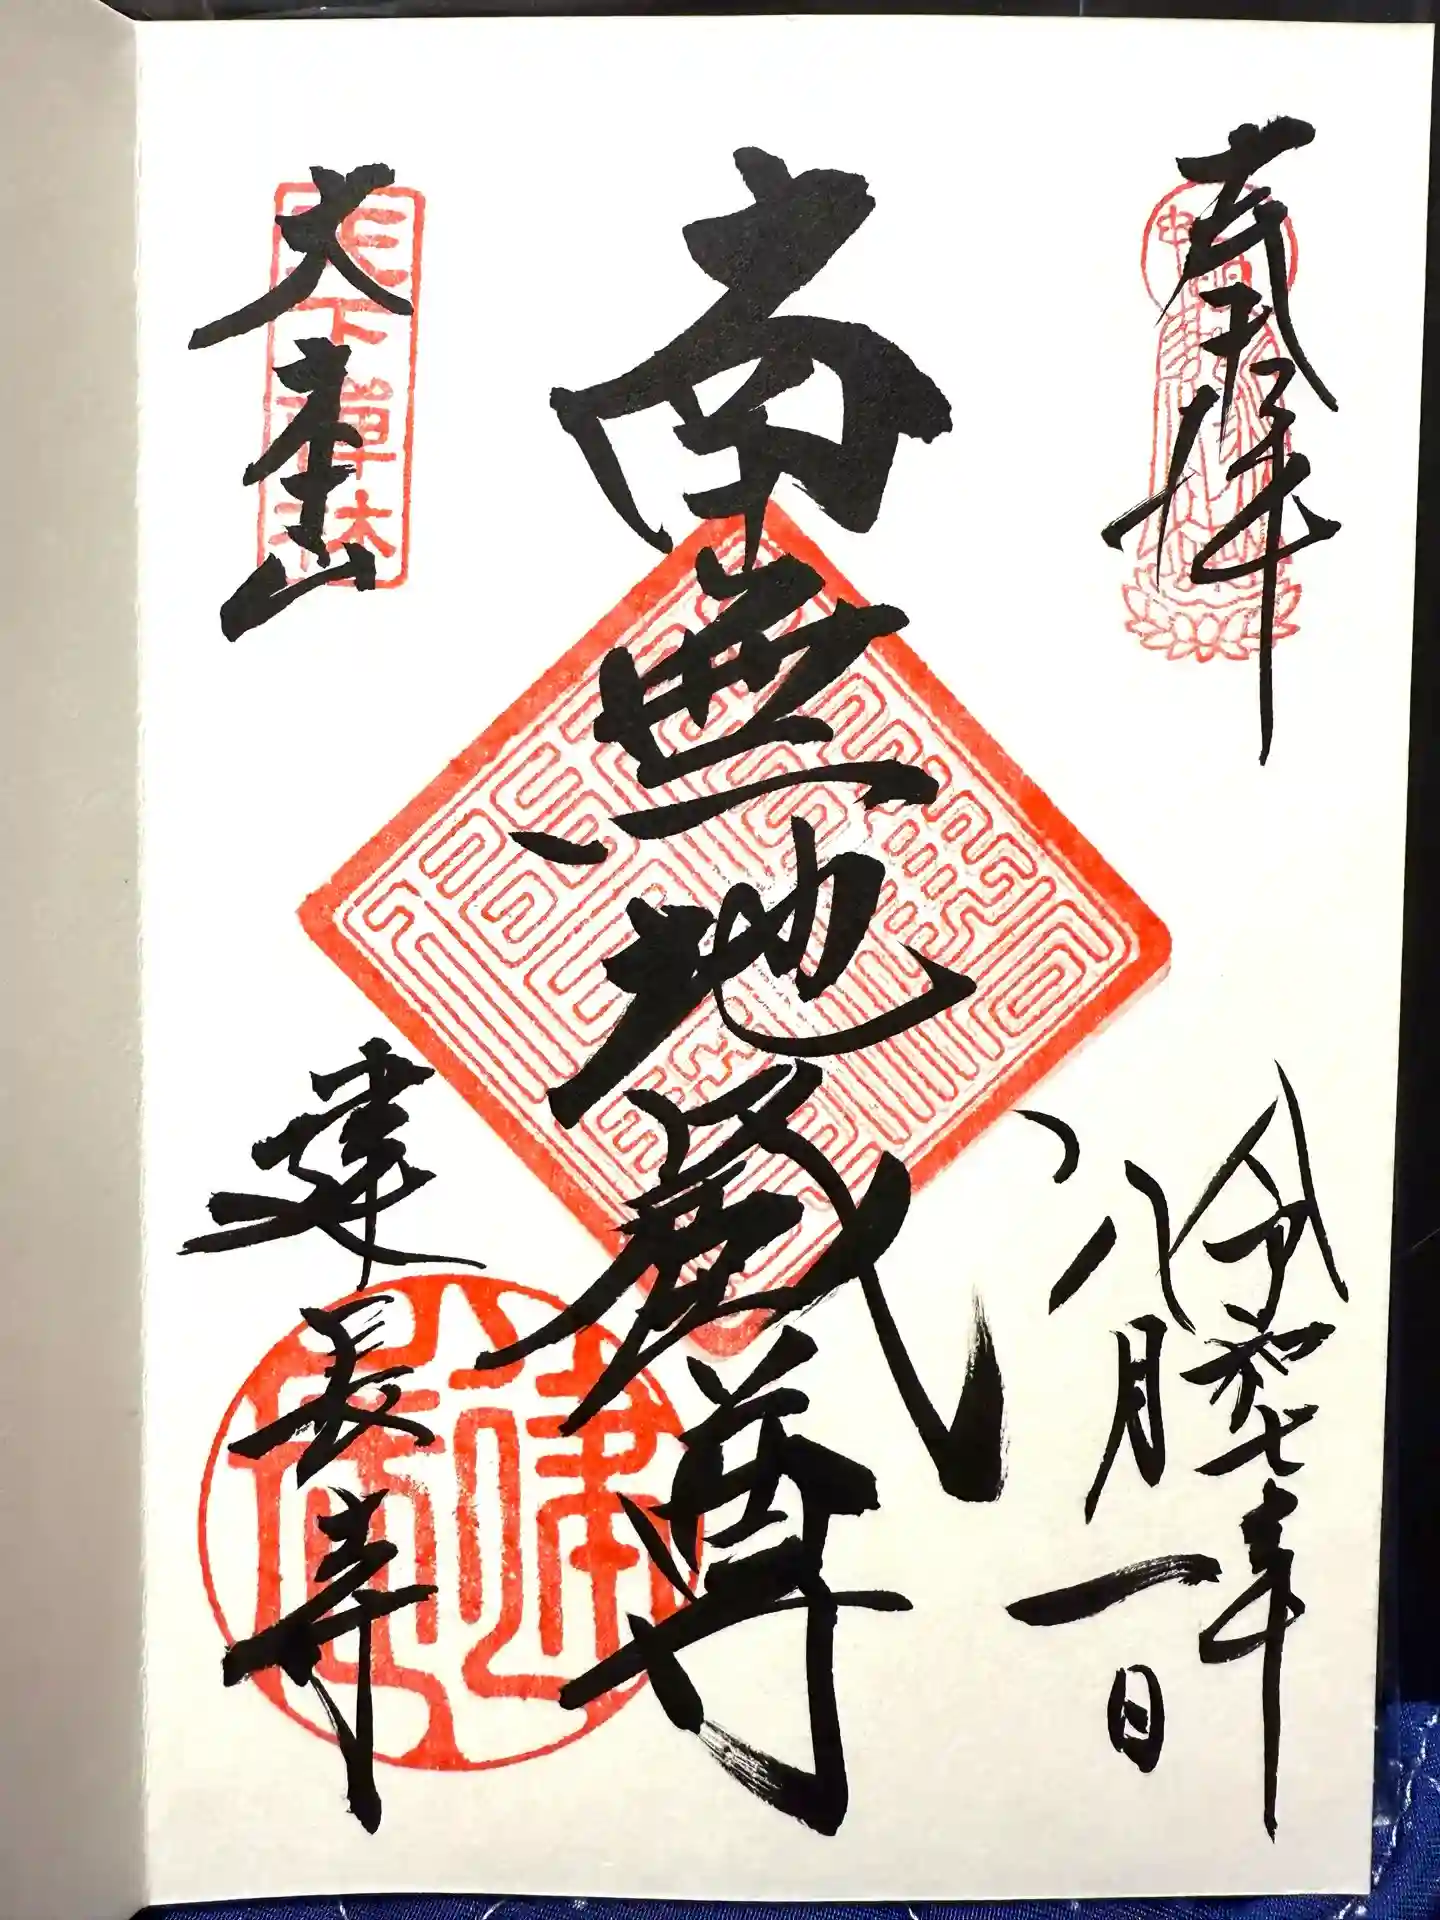 奉拝
令和七年
八月一日
南無地蔵尊
大本山
建長寺
天下禪林